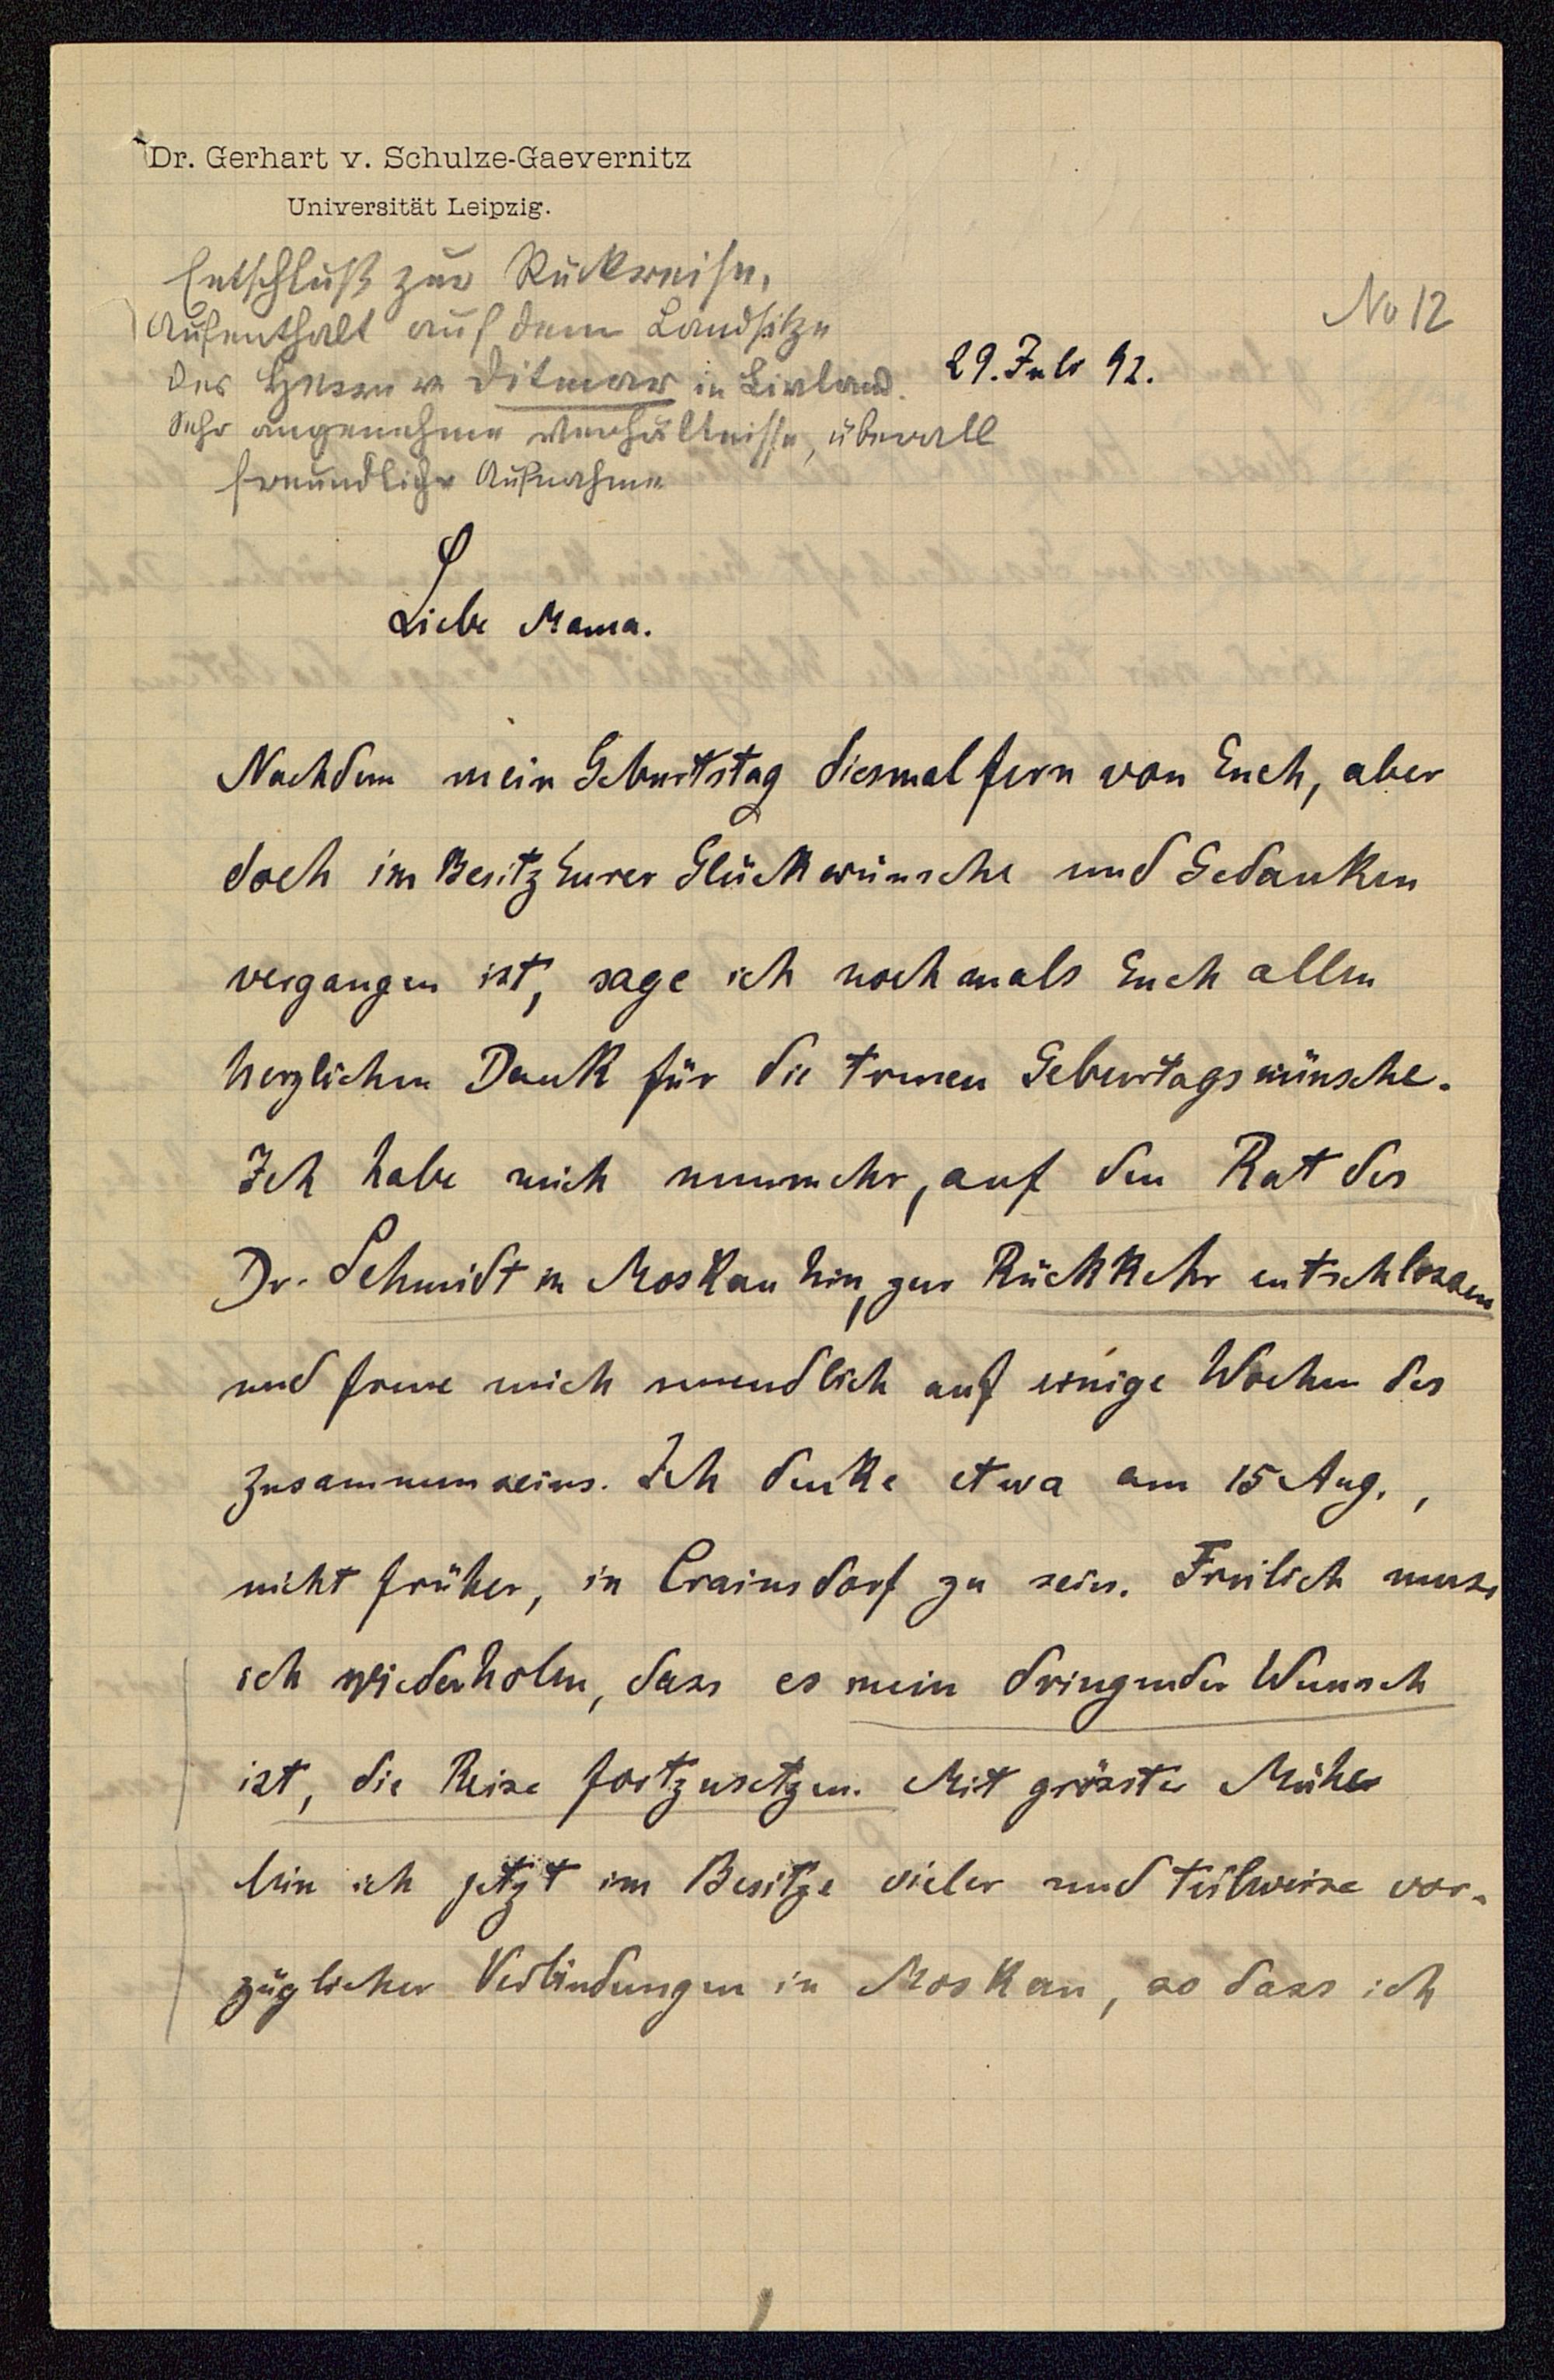 Dr. Gerhart v. Schulze-Gaevernitz
Universität Leipzig.
Entschluß zur Rückreise,
Aufenthalt auf dem Landsitze
No 12
des Herrn v. Ditmar in Livland.
29. Juli 92.
Sehr angenehme Verhältnisse, überall
freundliche Aufnahme
Liebe Mama.
Nachdem mein Geburtstag diesmal fern von Euch, aber
doch im Besitz Eurer Glückwünsche und Gedanken
vergangen ist, sage ich nochmals Euch allen
herzlichen Dank für die treuen Geburtagswünsche.
Ich habe mich nunmehr, auf den Rat des
Dr. Schmidt in Moskau hin, zur Rückkehr entschlossen
und freue mich unendlich auf einige Wochen des
Zusammenseins. Ich denke etwa am 15 Aug.,
nicht früher, in Crainsdorf zu sein. Freilich muss
ich wiederholen, dass es mein dringender Wunsch
ist, die Reise fortzusetzen. Mit grösster Mühe
bin ich jetzt im Besitze vieler und teilweise vor-
züglicher Verbindungen in Moskau, so dass ich